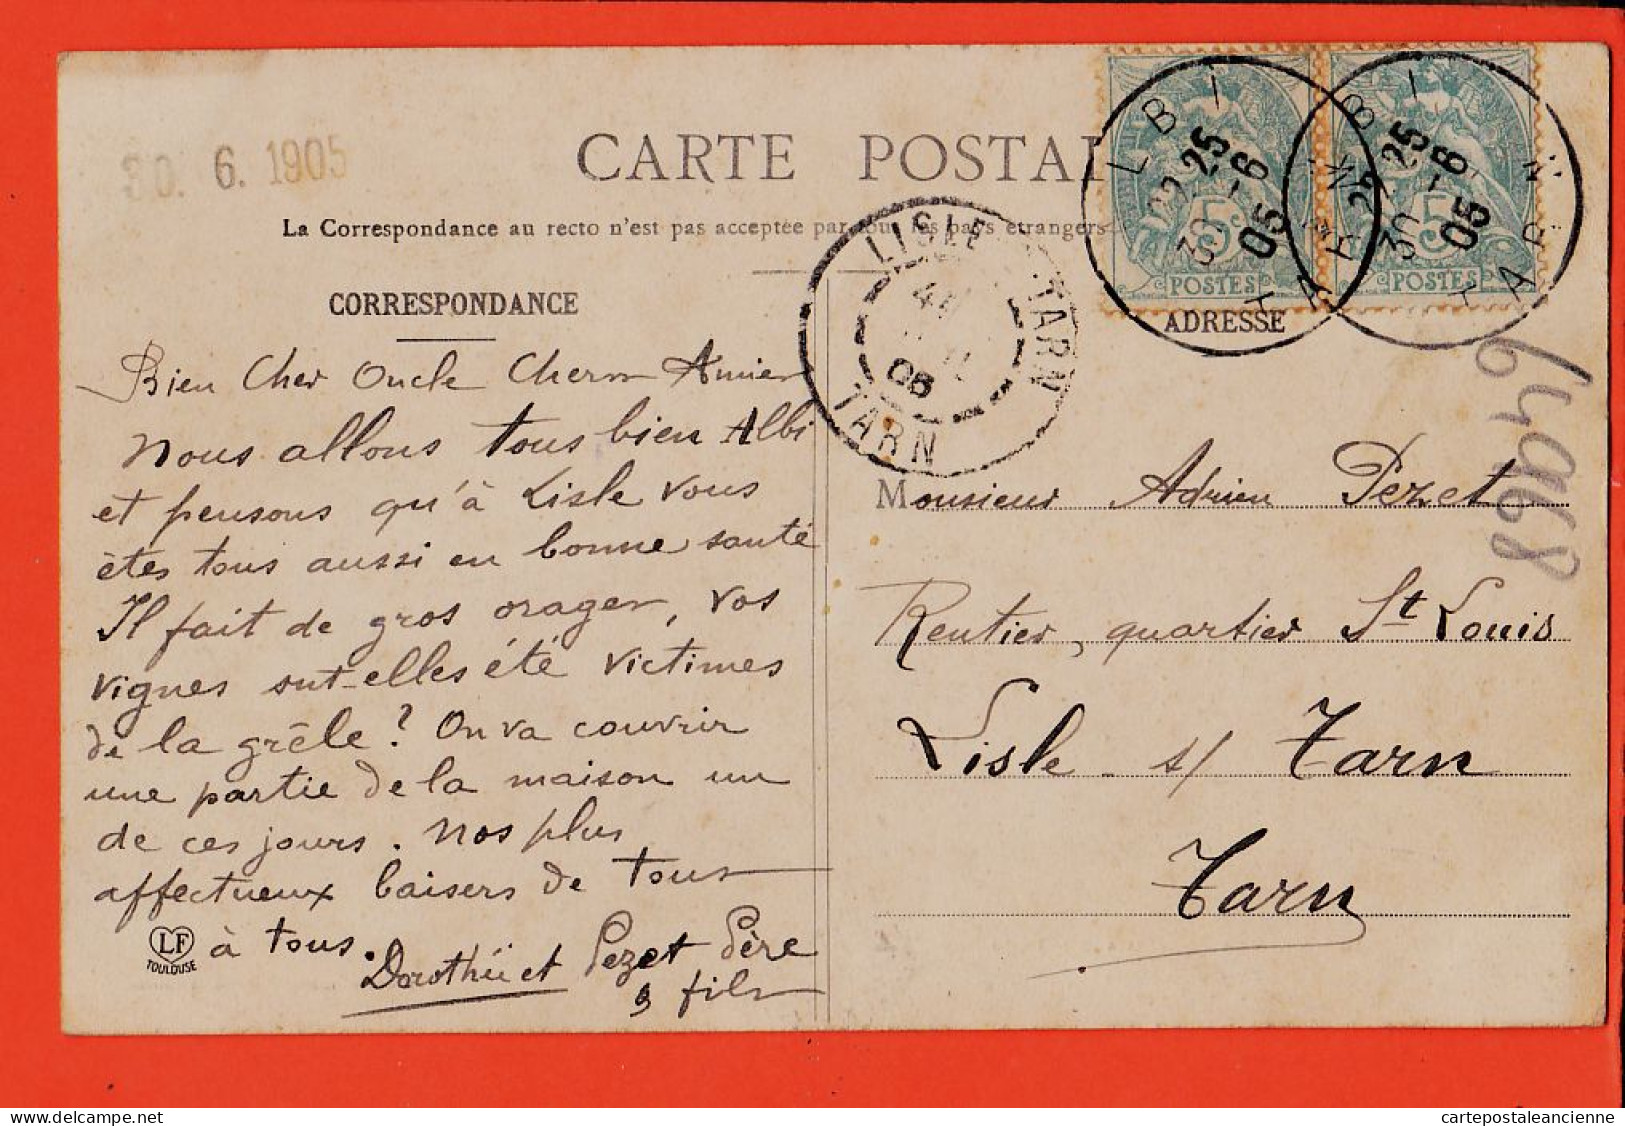 30. 6. 1905
CARTE POSTAL
La Correspondance au recto n'est pas acceptée par tous les pays étrangers
CORRESPONDANCE
Bien Cher Oncle Chers Amies
Nous allons tous bien Albi
et pensons qu'à Lisle vous
êtes tous aussi en bonne santé
Il fait de gros orages, vos
vignes ont-elles été victimes
de la grêle? On va couvrir
une partie de la maison un
de ces jours. Nos plus
affectueux baisers de tous
à tous.
Dorothée et Pezet Père
& fils
LF
TOULOUSE
LISLE TARN
TARN
05
ALBI
TARN
22 25
30 -6
05
5c
POSTES
ALBI
TARN
22 25
30 -6
05
5c
POSTES
ADRESSE
Monsieur Adrien Pezet
Rentier, quartier St Louis
Lisle s/ Tarn
Tarn
64968
cartepostaleancienne